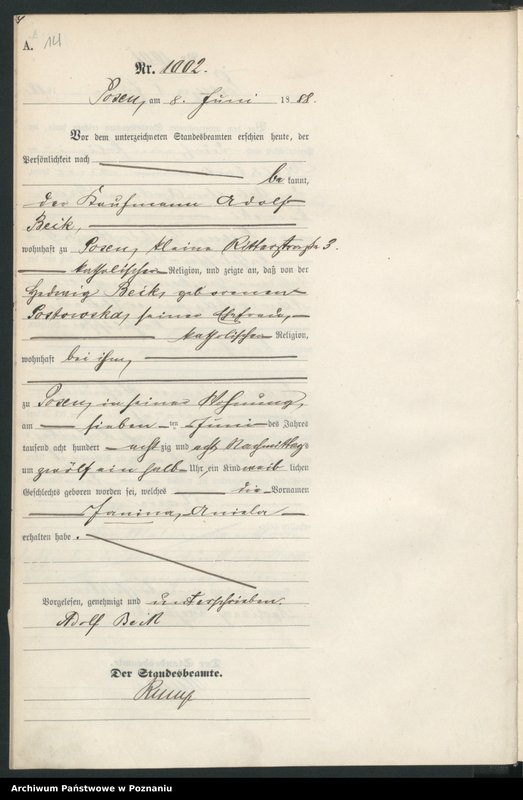 A. 14
Nr. 1002.
Posen, am 8. Juni 1888.
Vor dem unterzeichneten Standesbeamten erschien heute, der
Persönlichkeit nach
bekannt,
der Kaufmann Adolf
Beik,
wohnhaft zu Posen, kleine Ritterstraße 3.
katholischer Religion, und zeigte an, daß von der
Hedwig Beik, geborenen
Postowska, seiner Ehefrau,
katholischer Religion,
wohnhaft bei ihm,
zu Posen, in seiner Wohnung,
am sieben ten Juni des Jahres
tausend acht hundert achtzig und acht Nachmittags
um zwölf ein halb Uhr, ein Kind weiblichen
Geschlechts geboren worden sei, welches die Vornamen
Janina, Aniela
erhalten habe.
Vorgelesen, genehmigt und unterschrieben.
Adolf Beik
Der Standesbeamte.
Archiwum Państwowe w Poznaniu